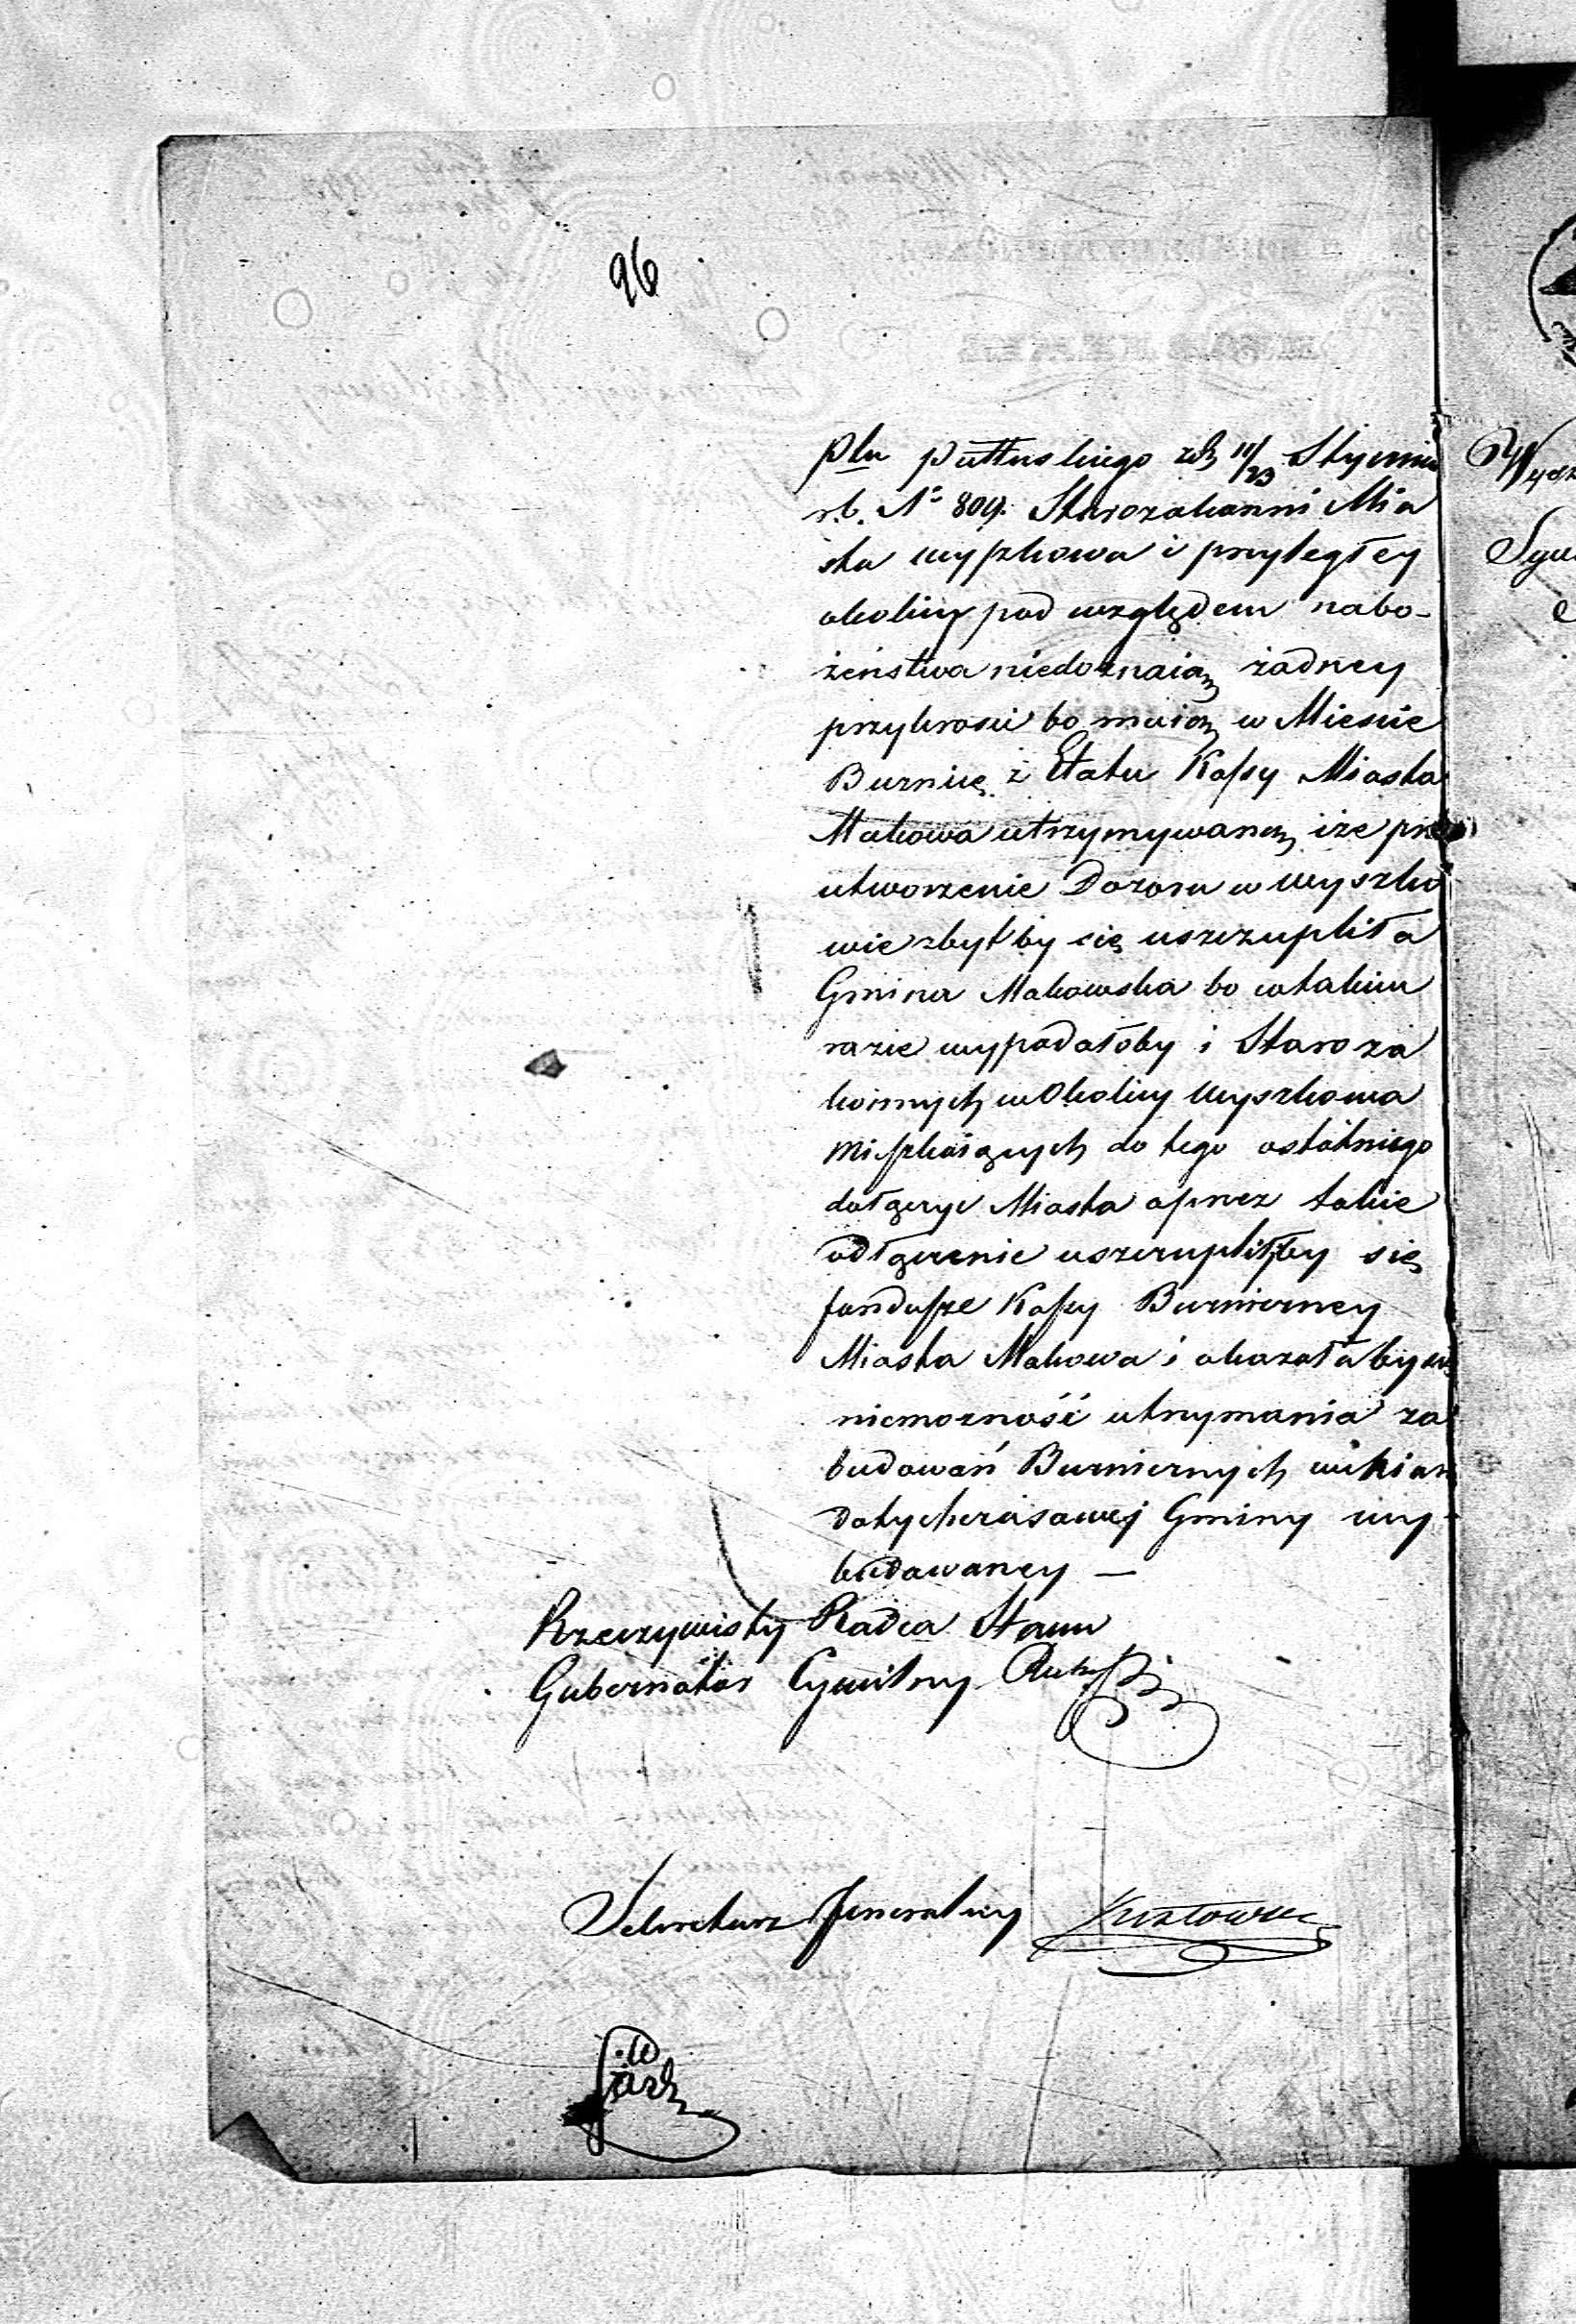 96
Ptu Pułtuskiego z d. 11/23 Stycznia
r.b. N° 809. Starozakonni Mia
sta Wyszkowa i przyległey
okolicy pod względem nabo-
żeństwa niedoznaią żadney
przykrości bo maią w Mieście
Burnicę z Etatu Kassy Miasta
Makowa utrzymywaną, iże prz
utworzenie Dozoru w Wyszko
wie zbyt by się uszczupliła
Gmina Makowska bo w takim
razie wypadałoby i Staroza
konnych w Okolicy Wyszkowa
mieszkaiących do tego ostatniego
dołączyć Miasta a przez takie
odłączenie uszczupliłby się
fundusze Kassy Burnicney
Miasta Makowa i okazała by się
niemożność utrzymania za
budowań Burnicznych
dotychczasowej Gminy wy-
budowaney —
Rzeczywisty Radca Stanu
Gubernator Cywilny
Sekretarz Jeneralny
Wysz